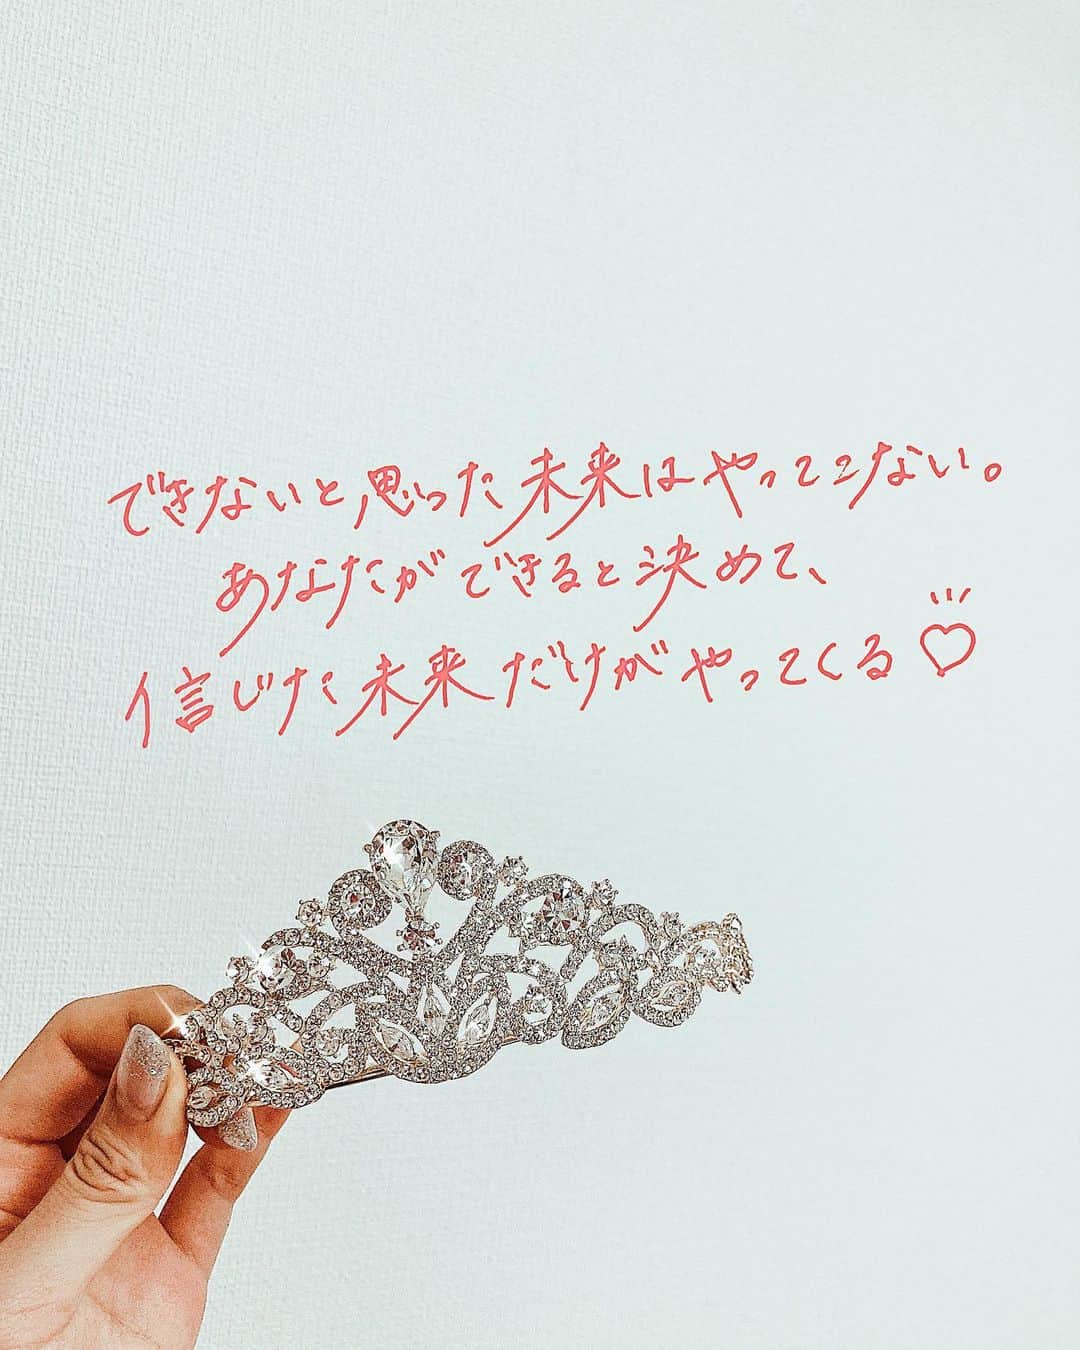 できないと思った未来はやってこない。
あなたができると決めて、
信じた未来だけがやってくる♡